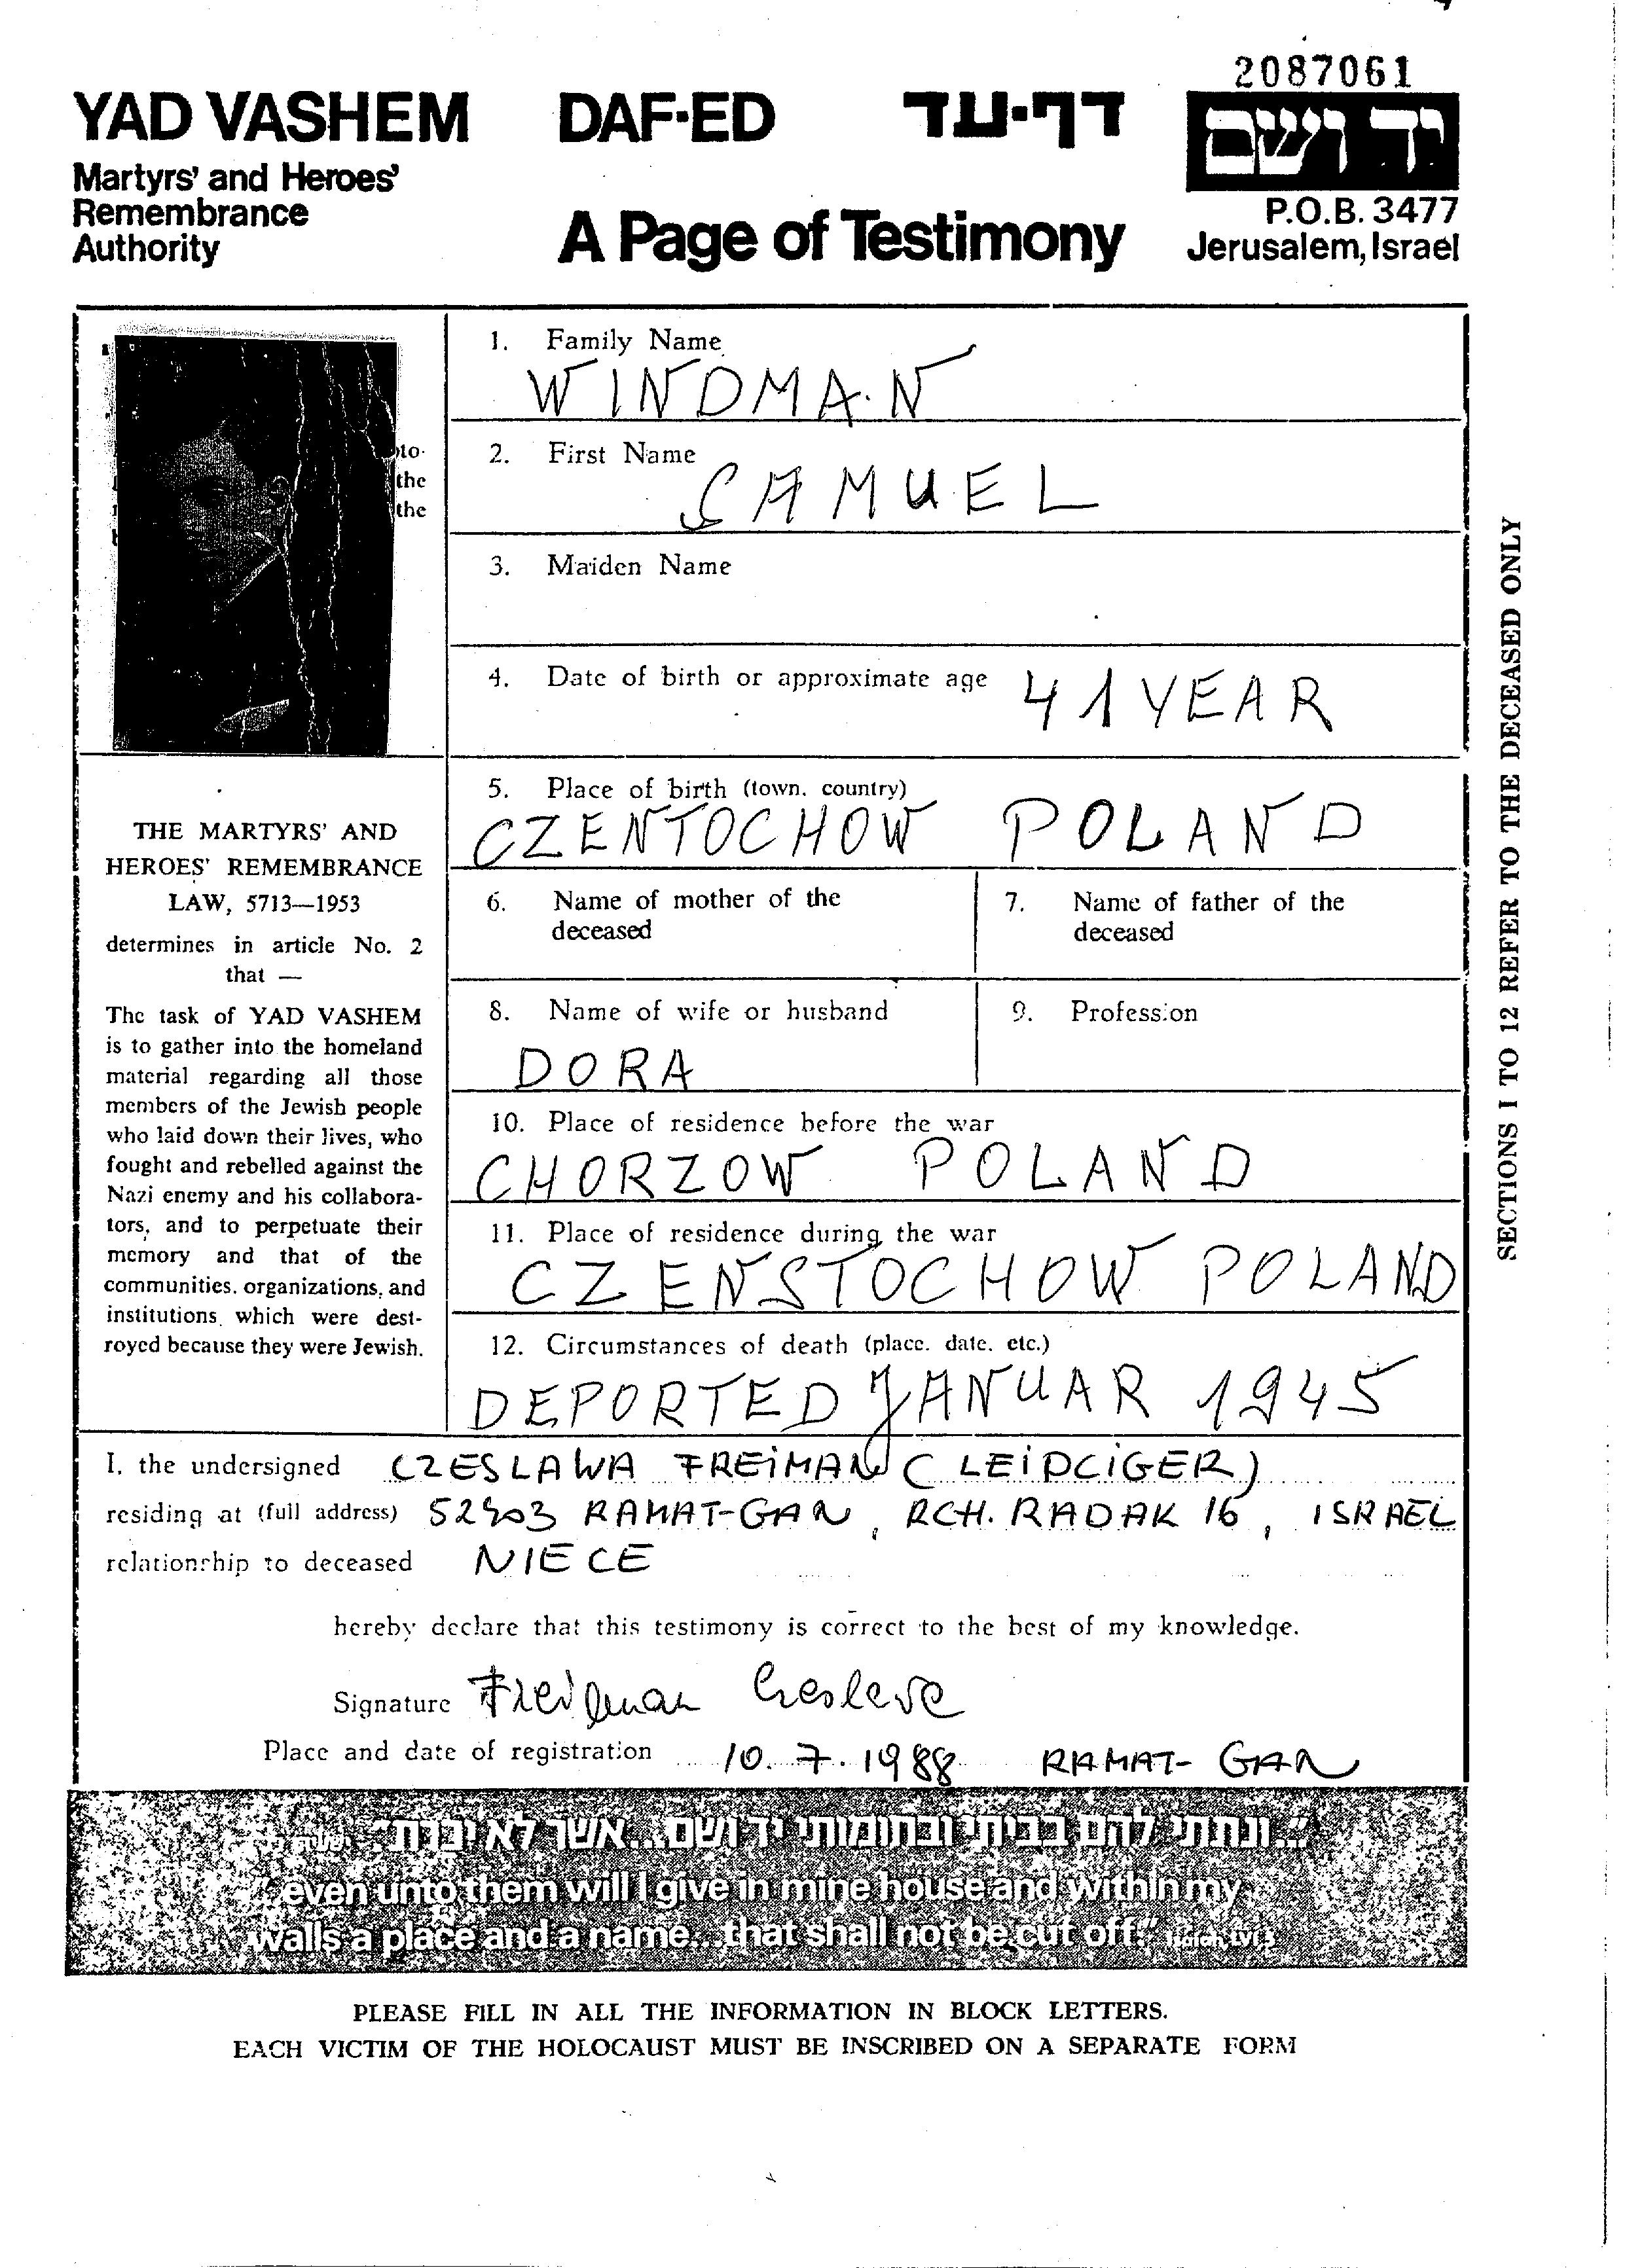 2087061
YAD VASHEM DAF-ED דף-עד
יד ושם
Martyrs' and Heroes'
Remembrance
Authority
A Page of Testimony
P.O.B. 3477
Jerusalem, Israel
to-
the
the
1. Family Name
WINDMAN
2. First Name
SAMUEL
3. Maiden Name
4. Date of birth or approximate age 41 YEAR
5. Place of birth (town, country)
CZENTOCHOW POLAND
6. Name of mother of the
deceased
7. Name of father of the
deceased
8. Name of wife or husband
DORA
9. Profession
10. Place of residence before the war
CHORZOW POLAND
11. Place of residence during the war
CZENSTOCHOW POLAND
12. Circumstances of death (place, date, etc.)
DEPORTED JANUAR 1945
THE MARTYRS' AND
HEROES' REMEMBRANCE
LAW, 5713—1953
determines in article No. 2
that —
The task of YAD VASHEM
is to gather into the homeland
material regarding all those
members of the Jewish people
who laid down their lives, who
fought and rebelled against the
Nazi enemy and his collabora-
tors, and to perpetuate their
memory and that of the
communities, organizations, and
institutions which were dest-
royed because they were Jewish.
SECTIONS 1 TO 12 REFER TO THE DECEASED ONLY
I, the undersigned CZESLAWA FREIMAN (LEIPCIGER)
residing at (full address) RAMAT-GAN, RCH. RADAK 16, ISRAEL
relationship to deceased NIECE
hereby declare that this testimony is correct to the best of my knowledge.
Signature Freiman
Place and date of registration 10.7.1988 RAMAT-GAN
"...ונתתי להם בביתי ובחומותי יד ושם...אשר לא יכרת"
"...even unto them will I give in mine house and within my
walls a place and a name...that shall not be cut off."
PLEASE FILL IN ALL THE INFORMATION IN BLOCK LETTERS.
EACH VICTIM OF THE HOLOCAUST MUST BE INSCRIBED ON A SEPARATE FORM